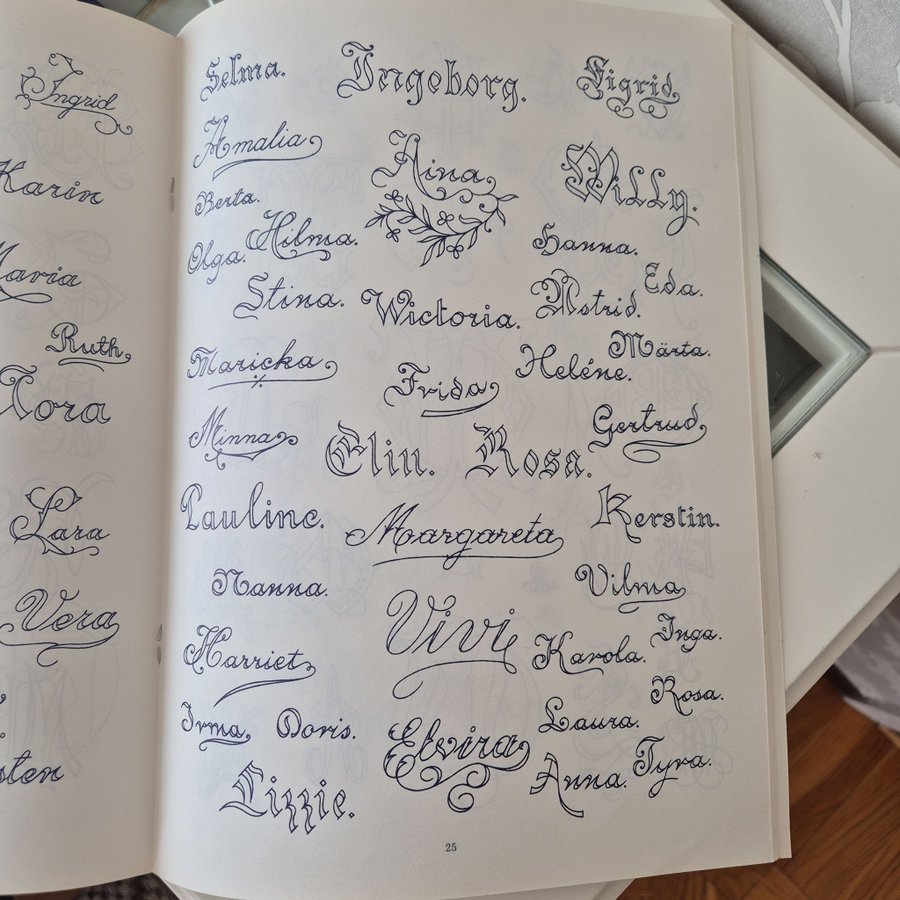 Ingrid
Karin
Maria
Ruth,
Tora
Lara
Vera
sten
Selma.
Ingeborg.
Sigrid.
Amalia
Aina
Willy.
Berta.
Hilma.
Olga.
Hanna.
Stina.
Wictoria.
Astrid.
Eda.
Maricka
Heléne.
Märta.
Frida
Minna
Elin.
Rosa.
Gertrud
Pauline.
Margareta
Kerstin.
Nanna.
Vilma
Vivi
Harriet
Karola.
Inga.
Irma,
Doris.
Elvira
Laura.
Rosa.
Lizzie.
Anna.
Tyra.
25